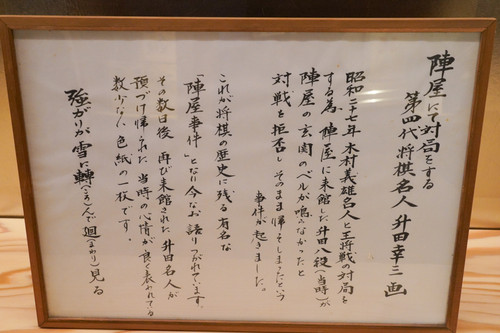 陣屋にて対局をする
第四代将棋名人 升田幸三画
昭和二十七年木村義雄名人と王将戦の対局を
する為、陣屋に来館した升田八段(当時)が
陣屋の玄関のベルが鳴らなかったと
対戦を拒否しそのまま帰ってしまったという
事件が起きました。
これが将棋の歴史に残る有名な
「陣屋事件」となり今なお語りつがれています。
その数日後 再び来館された升田名人が
預づけ帰られた当時の心情が良く表われてる
数少ない色紙の一枚です。
強がりが雪に轉(ころ)んで廻(まわ)り見る